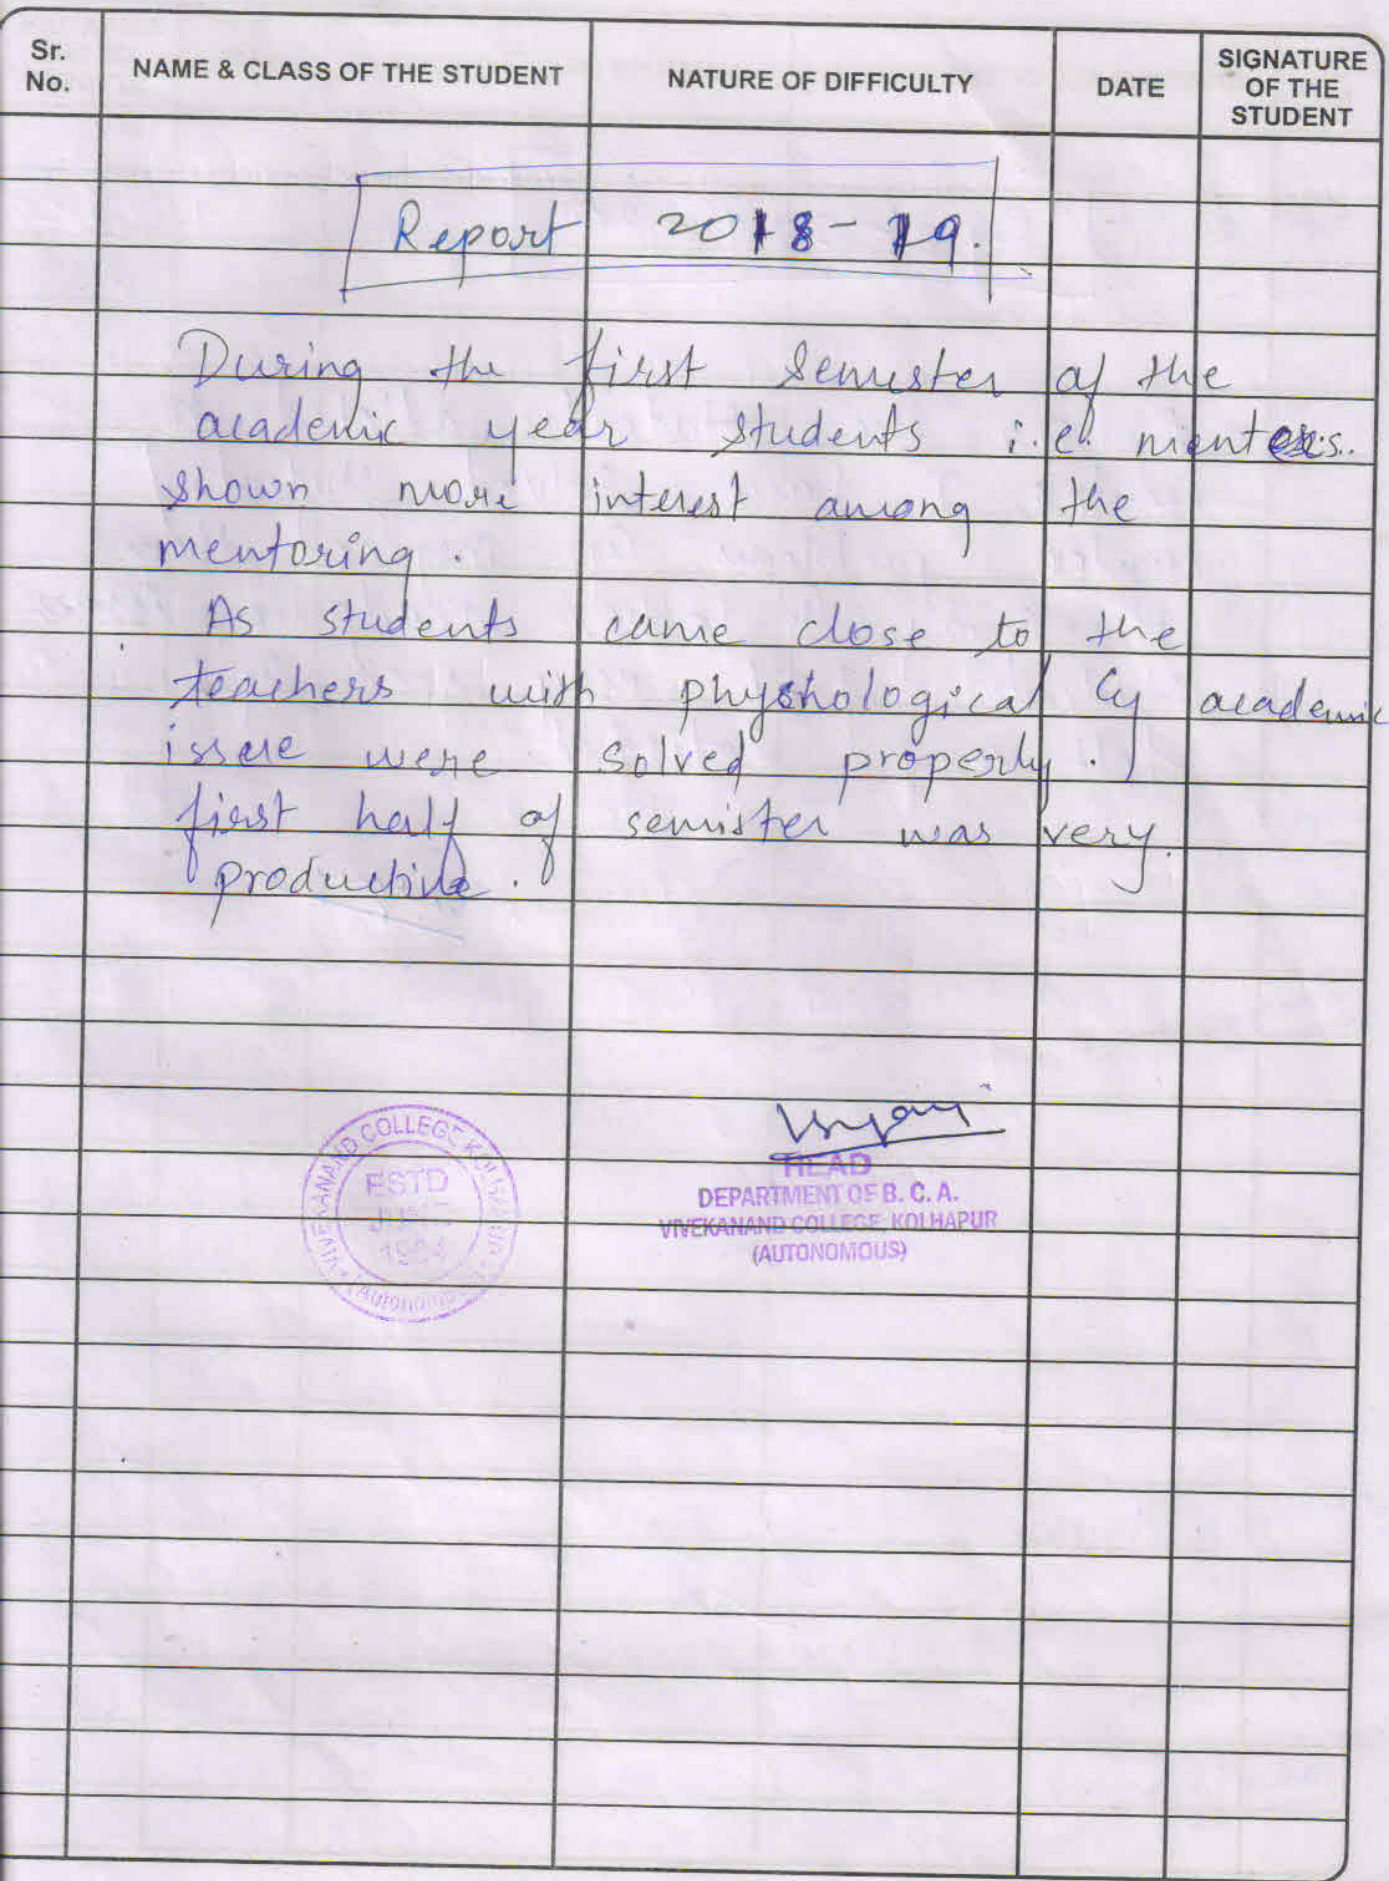 Sr. No.
NAME & CLASS OF THE STUDENT
NATURE OF DIFFICULTY
DATE
SIGNATURE OF THE STUDENT
Report 2018-19.
During the first Semester of the
academic year students i.e. mentes.
shown more interest among the
mentoring.
As students came close to the
teachers with physhological & academic
issue were solved properly.
first half of semister was very
productive.
VIVEKANAND COLLEGE
ESTD
JUNE
(Autonomous)
HEAD
DEPARTMENT OF B. C. A.
VIVEKANAND COLLEGE, KOLHAPUR
(AUTONOMOUS)